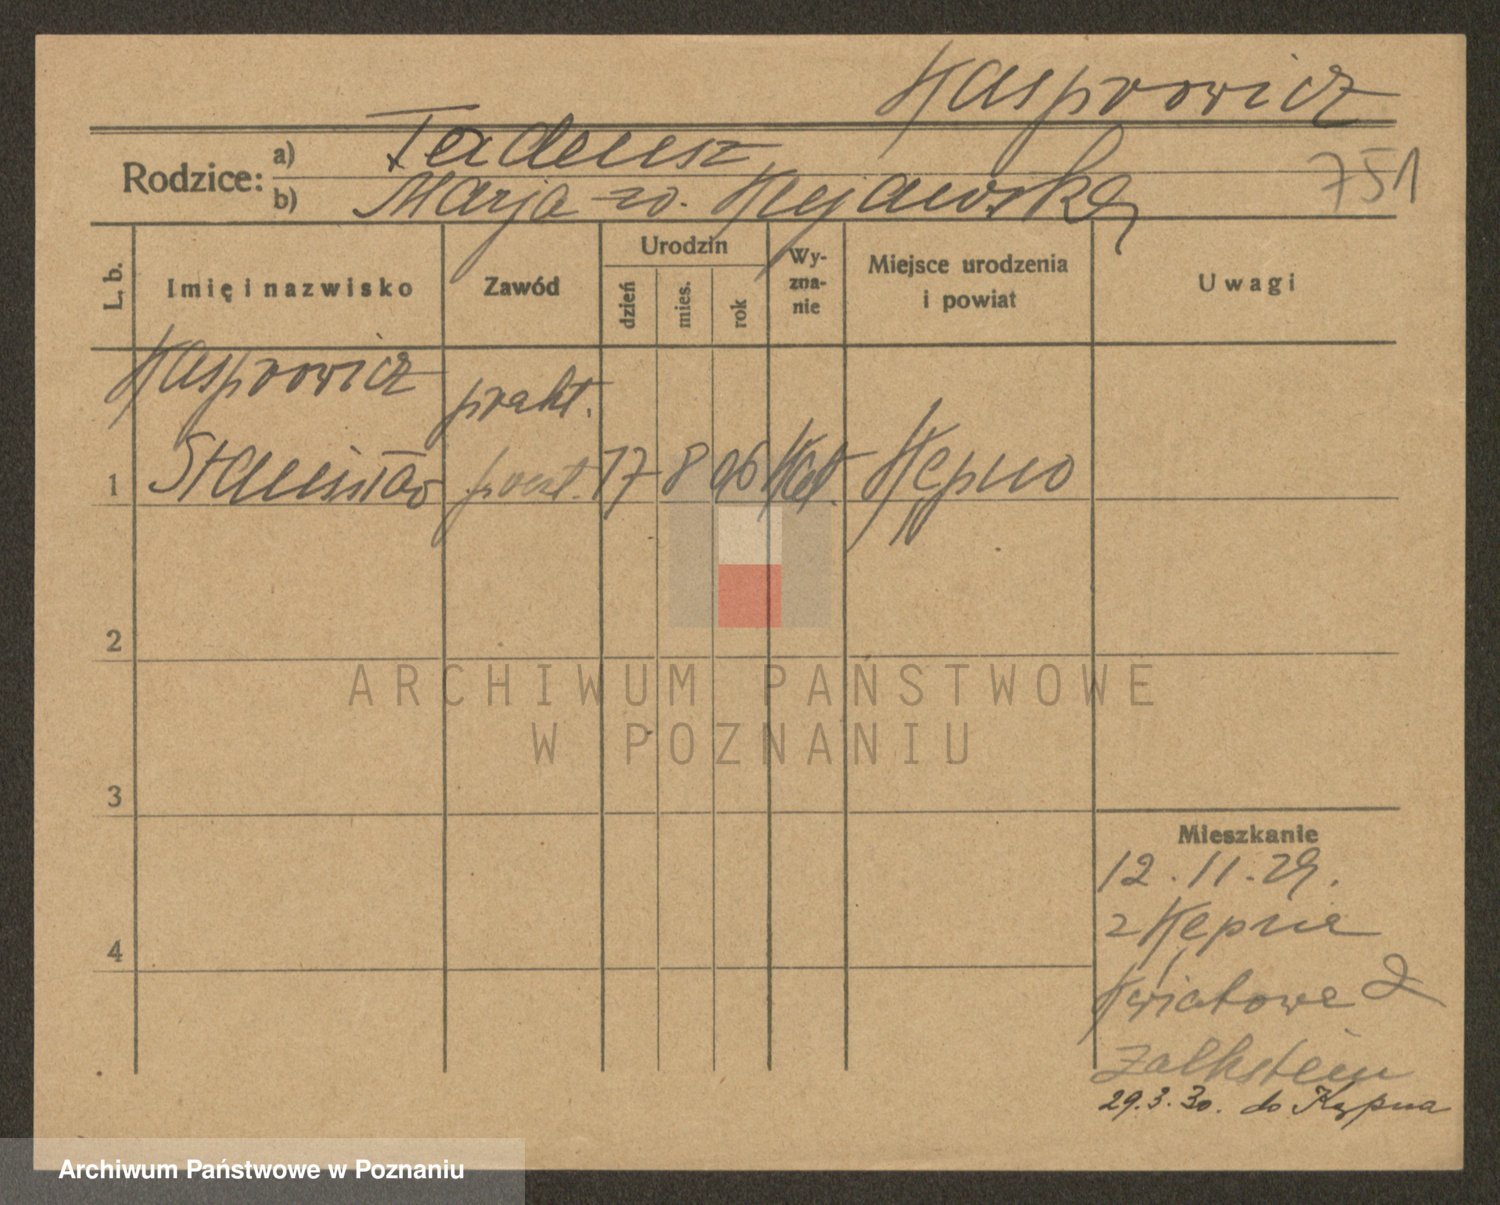 Kasprowicz
Rodzice: a) Tadeusz
b) Marja zd. Kujawska
751
L. b.
Imię i nazwisko
Zawód
Urodzin
dzień
mies.
rok
Wy-
zna-
nie
Miejsce urodzenia
i powiat
Uwagi
Kasprowicz prakt.
1 Stanisław poczt. 17 8 06 Kat. Kępno
2
3
4
Mieszkanie
12.11.29.
z Kępna
Kwiatowa 2
Zalkstein
29.3.30. do Kępna
ARCHIWUM PAŃSTWOWE
W POZNANIU
Archiwum Państwowe w Poznaniu